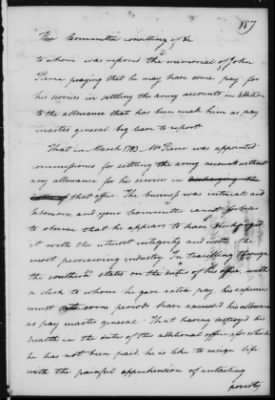 187
The Committee consisting of &c
to whom was referred the memorial of John
Pierce praying that he may have some pay for
his services in settling the army accounts in addition
to the allowance that has been made him as pay
master general beg leave to report
That in March 1783 Mr Pierce was appointed
commissioner for settling the army accounts without
any allowance for his services in discharging the
that office. The business was intricate and
laborious and your committee cannot forbear
to observe that he appears to have discharged
it with the strictest integrity and with the
most persevering industry. In travelling through
the southern states on the duties of his office with
a clerk to whom he gave extra pay, his expences
must at some periods have exceeded his allowance
as pay master general. That having destroyed his
health in the duties of this additional office for which
he has not been paid he is like to resign life
with the painful apprehension of entailing
poverty